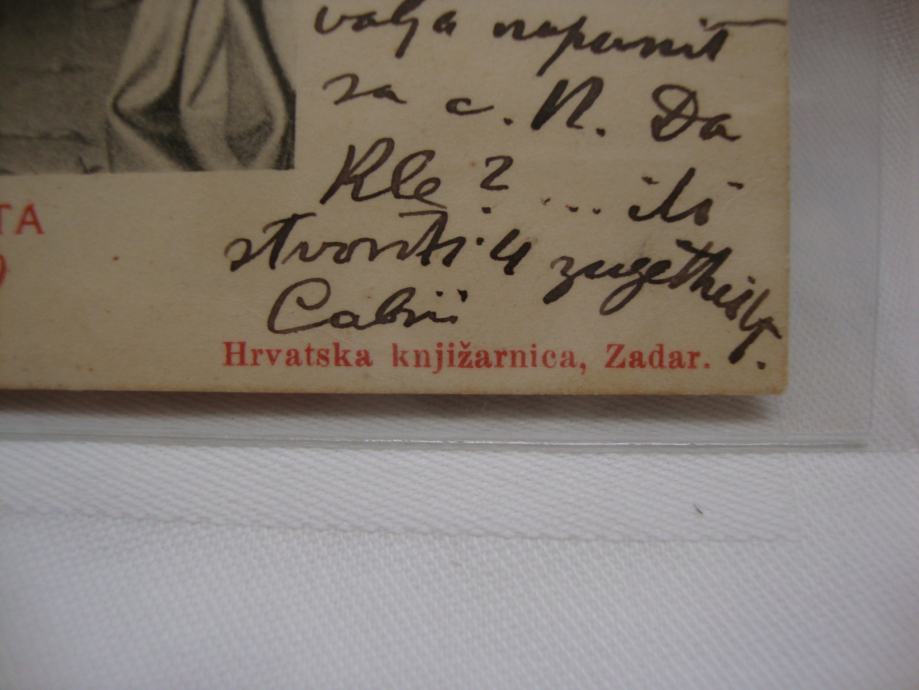 valja napunit
za c. N. Da
Kle? ... ili
stvoriti u
TA
Hrvatska knjižarnica, Zadar.